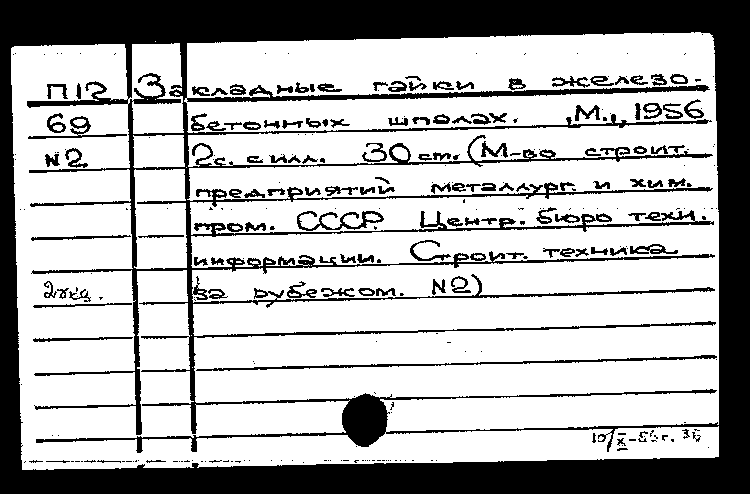 П12 Закладные гайки в железо-
69 бетонных шпалах. „М.„ 1956
N2. 2с. с илл. 30 см. (М-во строит.
предприятий металлург. и хим.
пром. СССР. Центр. бюро техн.
информации. Строит. техника
2 экз. за рубежом. N2)
10/X-56г. ЗБ